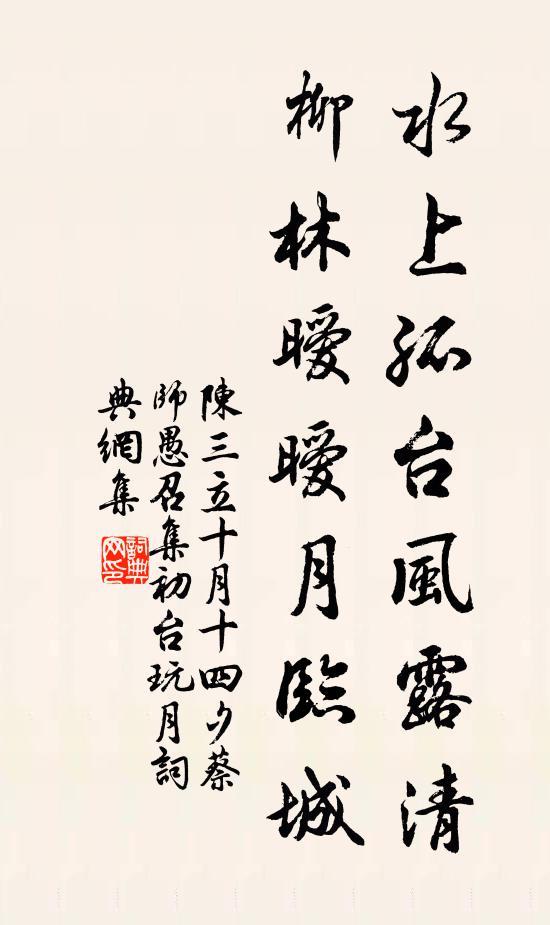 水上孤台風露清
柳林曖曖月臨城
陳三立十月十四夕蔡
師愚召集初台玩月詞
典網集
詞典网印